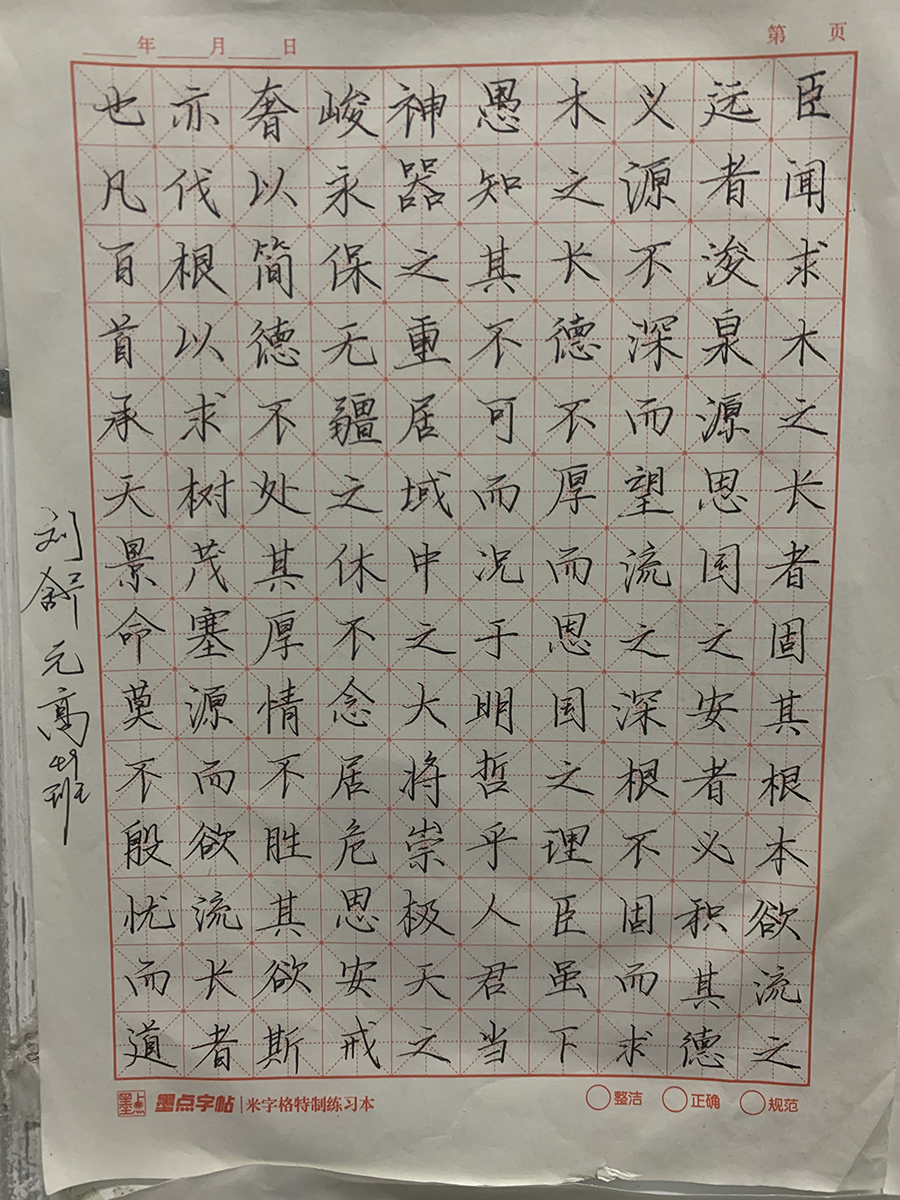 年 月 日
第 页
臣闻求木之长者固其根本欲流之
远者浚泉源思国之安者必积其德
义源不深而望流之深根不固而求
木之长德不厚而思国之理臣虽下
愚知其不可而况于明哲乎人君当
神器之重居域中之大将崇极天之
峻永保无疆之休不念居危思安戒
奢以简德不处其厚情不胜其欲斯
亦代根以求树茂塞源而欲流长者
也凡百首承天景命莫不殷忧而道
刘舒元高
班
墨点字帖 米字格特制练习本
整洁 正确 规范